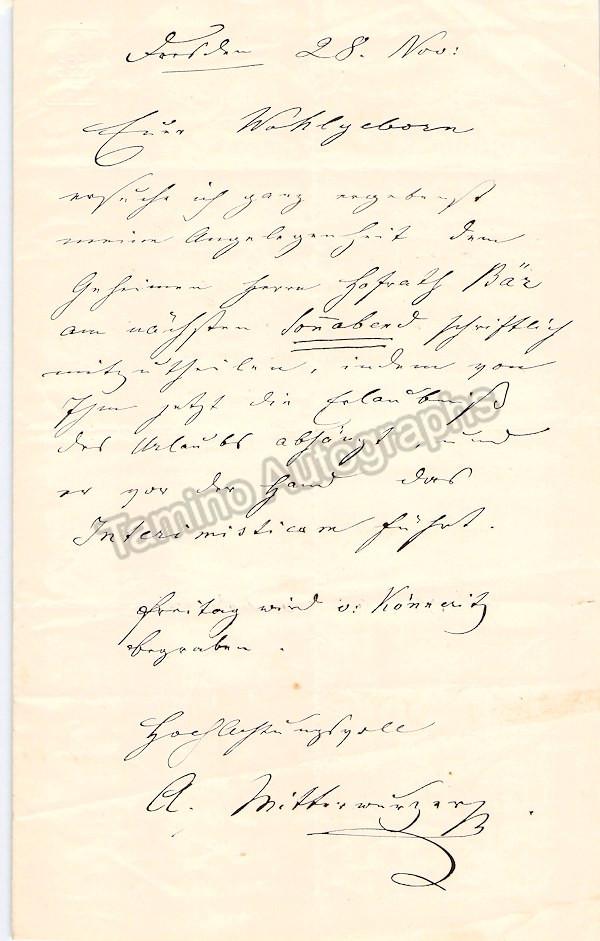 Dresden 28. Nov:
Euer Wohlgeborn
ersuche ich ganz ergebenst
meine Angelegenheit dem
Geheimen Herrn Hofrath Bär
am nächsten Sonnabend schriftlich
mitzutheilen, indem von
Ihm jetzt die Erlaubniß
des Urlaubs abhängt, und
er vor der Hand das
Interimisticum führt.
Freitag wird v: Könneritz
begraben.
Hochachtungsvoll
A. Mitterwurzer
Tamino Autographs